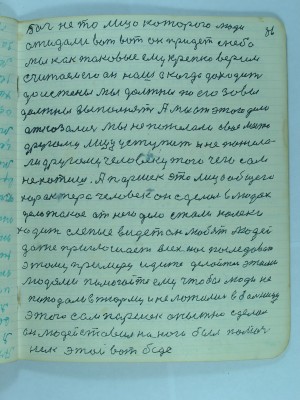 Бач не то лицо которого люди
ожидали вот вот он придет с неба
мы как таковые ему крепко верим
считаем его он наш а когда доходит
до истены мы должны по его зову
должны выполнять А мы от этого дела
отказались мы не пожелали свое место
другому лицу уступить и не пожела
ли другому человеку того чего сам
не хотиш. А паршек это лицо общего
характера человек он сделал в людях
должное от него дело стали ноги
ходить слепые видеть он любит людей
даже приглашает всех нас последовать
этому примеру идите делайте этими
людями помогайте ему чтобы люди не
попадали в тюрму и не ложились в больницу
этого сам паршек опытно сделал
он людей ставил на ноги был помощ
ник этой вот беде